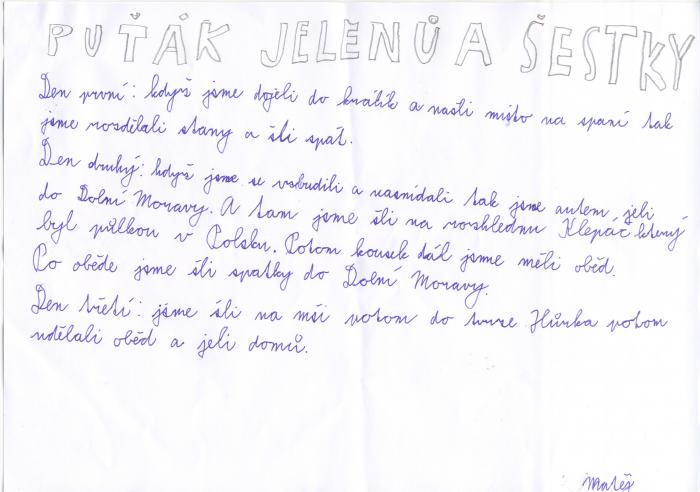 PUŤÁK JELENŮ A ŠESTKY
Den první: když jsme dojeli do králík a našli místo na spaní tak
jsme rozdělali stany a šli spát.
Den druhý: když jsme se vzbudili a nasnídali tak jsme autem jeli
do Dolní Moravy. A tam jsme šli na rozhlednu Klepáč který
byl půlkou v Polsku. Potom kousek dál jsme měli oběd.
Po obědě jsme šli spatky do Dolní Moravy.
Den třetí: jsme šli na mši potom do tvrze Hůrka potom
udělali oběd a jeli domů.
Matěj